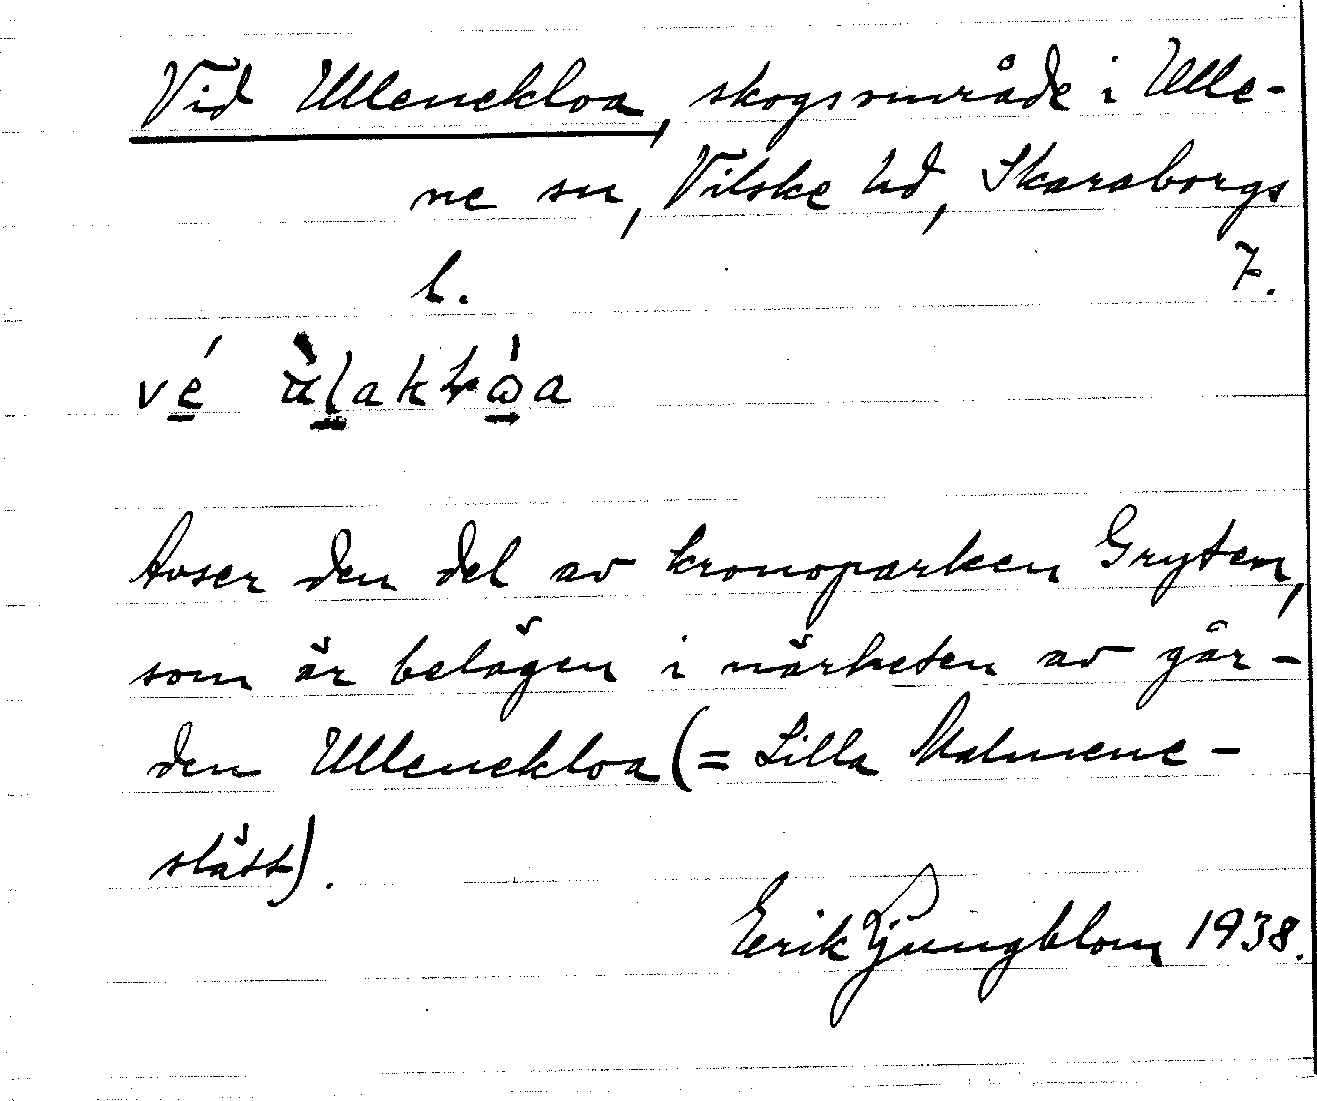 Vid Ullenekloa, skogsområde i Ulle-
ne sn, Vilske hd, Skaraborgs
l. 7.
Avser den del av kronoparken Gryten,
som är belägen i närheten av går-
den Ullenekloa (= Lilla Malmene-
slätt).
Erik Ljungblom 1938.